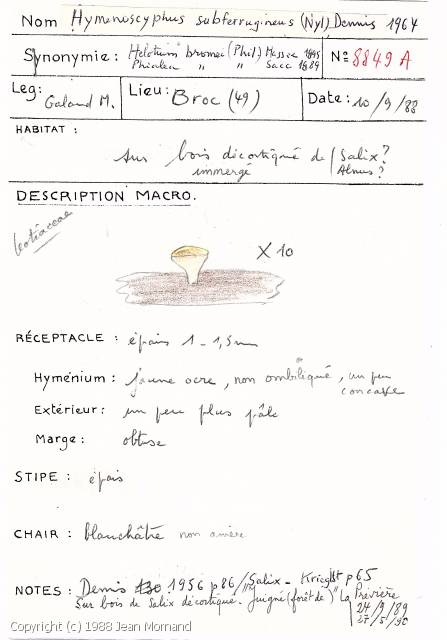 Nom Hymenoscyphus subferrugineus (Nyl) Dennis 1964
Synonymie: Helotium bromei (Phil) Massee 1895
Phialea " " Sacc 1889
N° 8849 A
Leg: Galand M.
Lieu: Broc (49)
Date: 10/9/88
HABITAT :
Sur bois décortiqué de (Salix?
immergé Alnus?
DESCRIPTION MACRO.
Leotiaceae
X 10
RÉCEPTACLE : épais 1 - 1,5mm
Hyménium : jaune ocre, non ombiliqué, un peu
concave
Extérieur : un peu plus pâle
Marge : obtuse
STIPE : épais
CHAIR : blanchâtre non amère
NOTES : Dennis 1956 p86/Salix - p65
Sur bois de Salix décortiqué. Juigné (forêt de) "La Prévière
24/9/89
27/5/90
Copyright (c) 1988 Jean Mornand